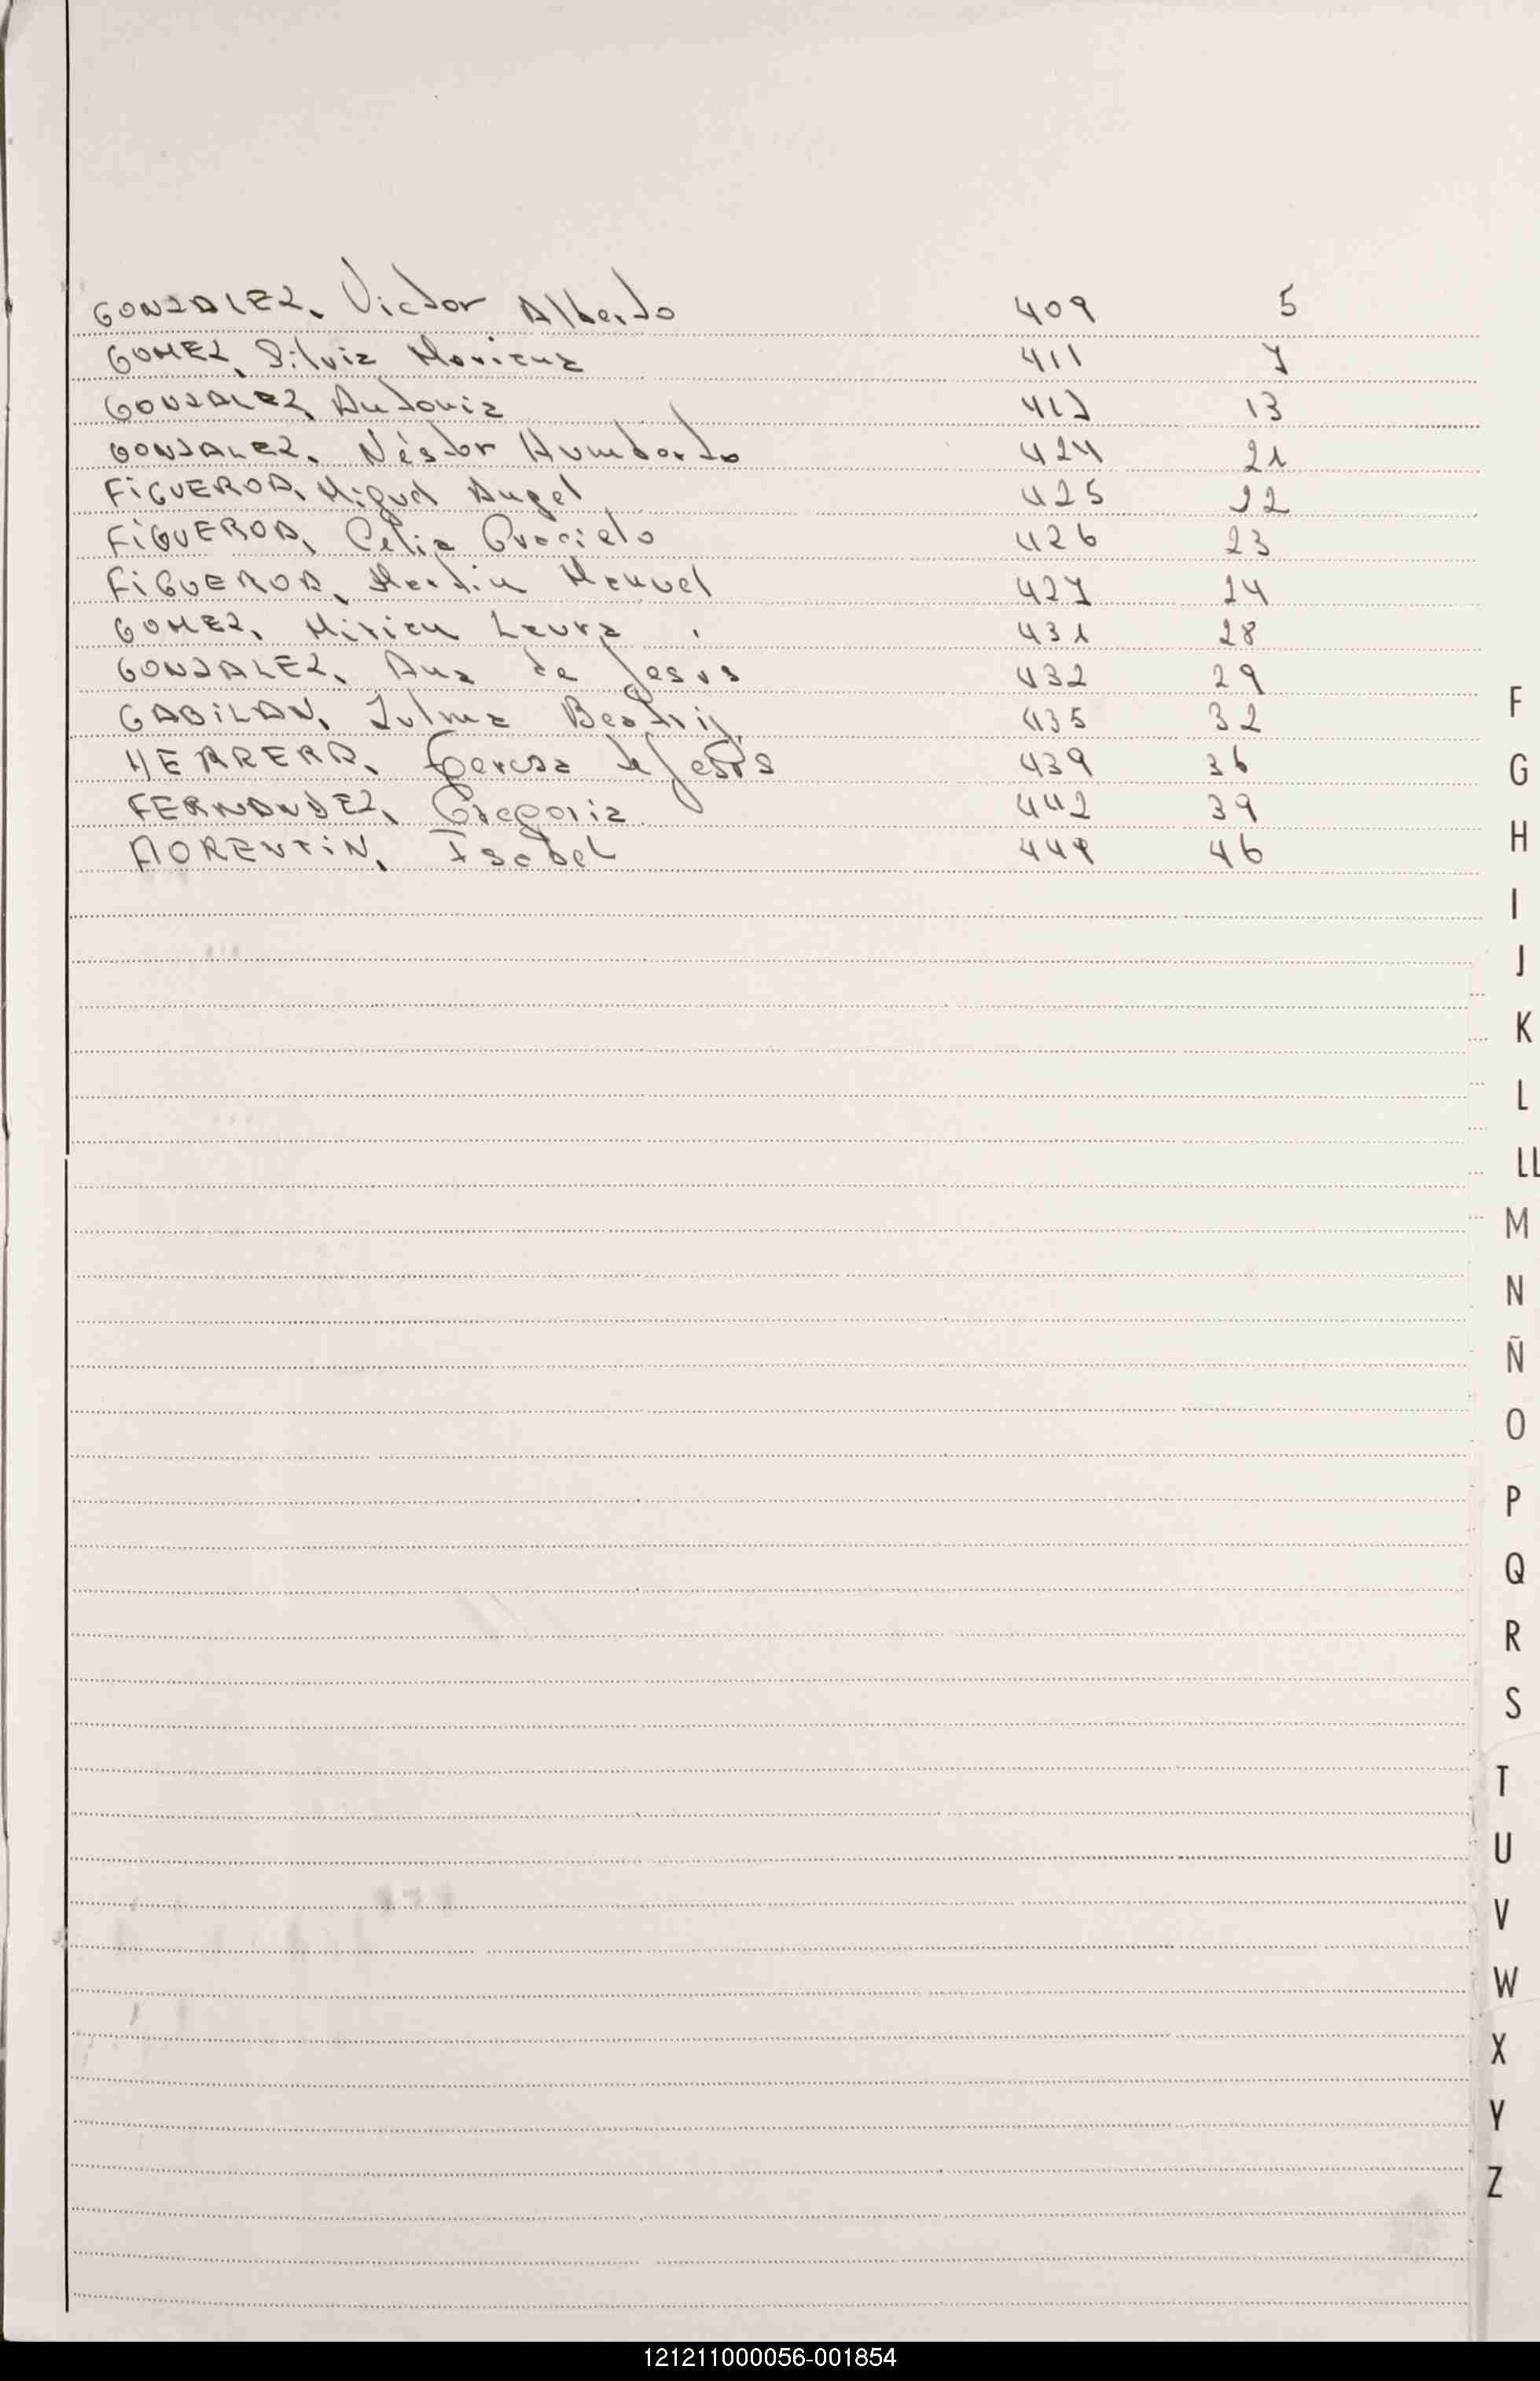 GONZALEZ, Victor Alberto 409 5
GOMEZ, Silvia Mariana 411 7
GONZALEZ, Antonia 417 13
GONZALEZ, Néstor Humberto 424 21
FiGUEROA, Miguel Angel 425 22
FiGUEROA, Celia Graciela 426 23
FiGUEROA, Martin Manuel 427 24
GOMEZ, Mirian Laura 431 28
GONZALEZ, Ana de Jesús 432 29
GABiLAN, Zulma Beatriz 435 32
HERRERA, Teresa de Jesús 439 36
FERNANDEZ, Gregoria 442 39
FLORENTiN, Isabel 449 46
F
G
H
I
J
K
L
LL
M
N
Ñ
O
P
Q
R
S
T
U
V
W
X
Y
Z
121211000056-001854